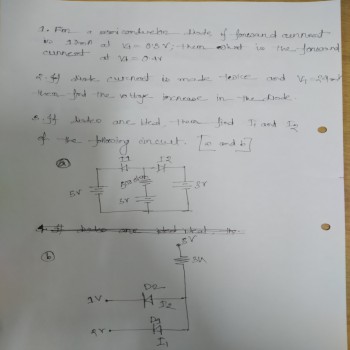 1. For a semiconductor diode if forward current
is 1.5mA at Vd = 0.3V, then what is the forward
current at Vd = 0.4V
2. If diode current is made twice and
then find the voltage increase in the diode.
3. If diodes are ideal then find I1 and I2
of the following circuit. [a and b]
(a)
I1 I2
5V 5V 3V
4. If diodes are ideal that the
(b)
5V
D2
1V I2
D1
I1